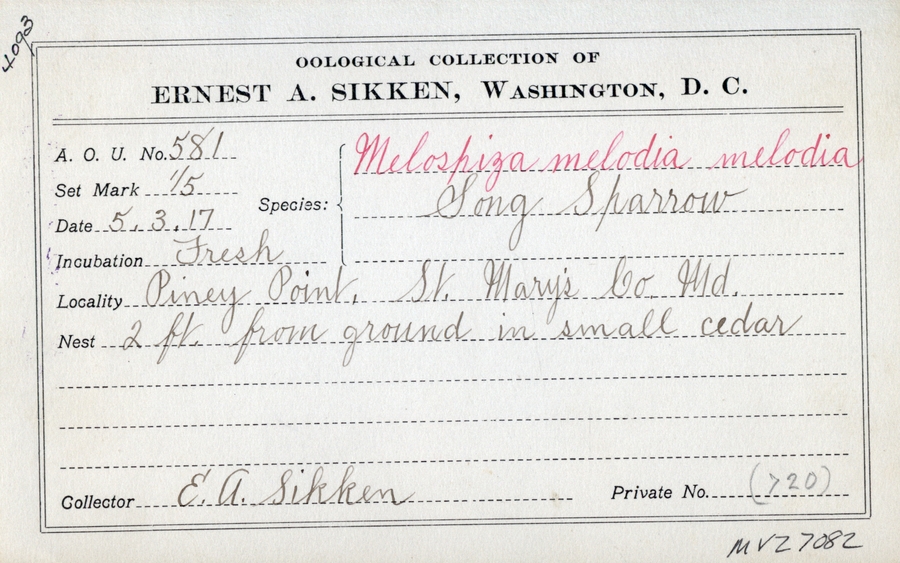 4093
OOLOGICAL COLLECTION OF
ERNEST A. SIKKEN, WASHINGTON, D. C.
A. O. U. No. 581
Set Mark 1/5
Date 5.3.17
Incubation Fresh
Species: Melospiza melodia melodia
Song Sparrow
Locality Piney Point, St. Mary's Co. Md.
Nest 2 ft. from ground in small cedar
Collector E. A. Sikken
Private No. (720)
MVZ 7082